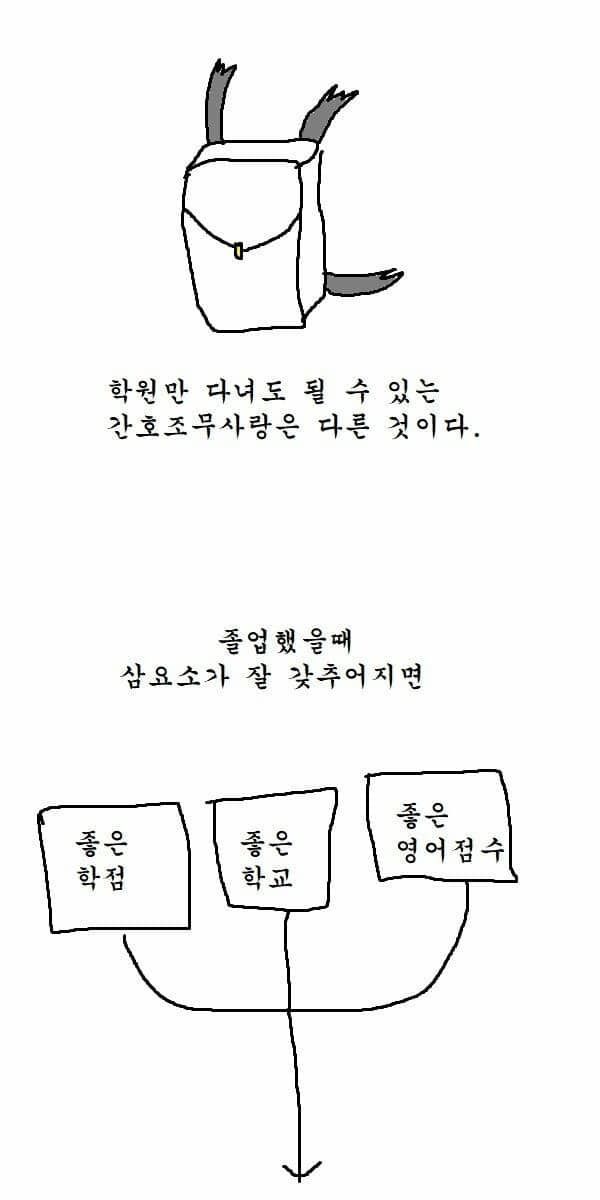 학원만 다녀도 될 수 있는
간호조무사랑은 다른 것이다.
졸업했을때
삼요소가 잘 갖추어지면
좋은
학점
좋은
학교
좋은
영어점수